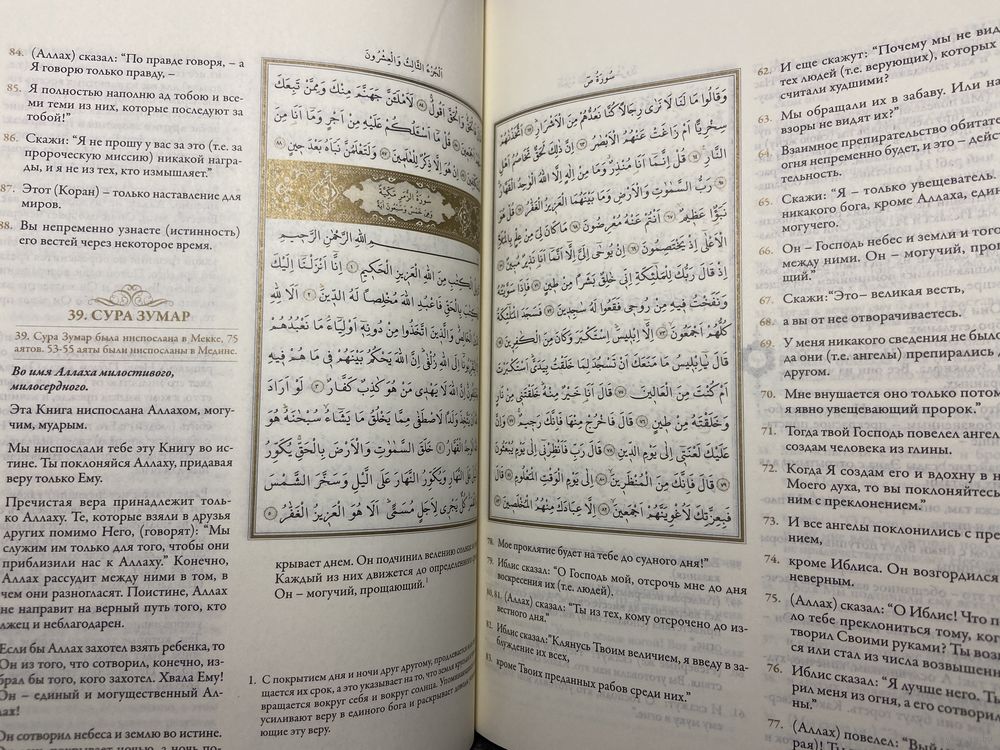 سُورَةُ صٓ
وَقَالُوا مَا لَنَا لَا نَرٰى رِجَالًا كُنَّا نَعُدُّهُمْ مِنَ الْاَشْرَارِ ﴿٦٢﴾ اَتَّخَذْنَاهُمْ
سِخْرِيًّا اَمْ زَاغَتْ عَنْهُمُ الْاَبْصَارُ ﴿٦٣﴾ اِنَّ ذٰلِكَ لَحَقٌّ تَخَاصُمُ اَهْلِ
النَّارِ ﴿٦٤﴾ قُلْ اِنَّمَا اَنَا مُنْذِرٌ وَمَا مِنْ اِلٰهٍ اِلَّا اللّٰهُ الْوَاحِدُ الْقَهَّارُ ﴿٦٥﴾
رَبُّ السَّمٰوَاتِ وَالْاَرْضِ وَمَا بَيْنَهُمَا الْعَزِيزُ الْغَفَّارُ ﴿٦٦﴾ قُلْ هُوَ
نَبَؤٌا عَظِيمٌ ﴿٦٧﴾ اَنْتُمْ عَنْهُ مُعْرِضُونَ ﴿٦٨﴾ مَا كَانَ لِيَ مِنْ عِلْمٍ بِالْمَلَأِ
الْاَعْلٰٓى اِذْ يَخْتَصِمُونَ ﴿٦٩﴾ اِنْ يُوحٰٓى اِلَيَّ اِلَّٓا اَنَّمَٓا اَنَا نَذِيرٌ مُبِينٌ ﴿٧٠﴾
اِذْ قَالَ رَبُّكَ لِلْمَلٰٓئِكَةِ اِنِّي خَالِقٌ بَشَرًا مِنْ طِينٍ ﴿٧١﴾ فَاِذَا سَوَّيْتُهُ
وَنَفَخْتُ فِيهِ مِنْ رُوحِي فَقَعُوا لَهُ سَاجِدِينَ ﴿٧٢﴾ فَسَجَدَ الْمَلٰٓئِكَةُ
كُلُّهُمْ اَجْمَعُونَ ﴿٧٣﴾ اِلَّٓا اِبْلِيسَ اِسْتَكْبَرَ وَكَانَ مِنَ الْكَافِرِينَ ﴿٧٤﴾
قَالَ يَٓا اِبْلِيسُ مَا مَنَعَكَ اَنْ تَسْجُدَ لِمَا خَلَقْتُ بِيَدَيَّ اَسْتَكْبَرْتَ
اَمْ كُنْتَ مِنَ الْعَالِينَ ﴿٧٥﴾ قَالَ اَنَا خَيْرٌ مِنْهُ خَلَقْتَنِي مِنْ نَارٍ
وَخَلَقْتَهُ مِنْ طِينٍ ﴿٧٦﴾ قَالَ فَاخْرُجْ مِنْهَا فَاِنَّكَ رَجِيمٌ ﴿٧٧﴾ وَاِنَّ
عَلَيْكَ لَعْنَتِٓي اِلٰى يَوْمِ الدِّينِ ﴿٧٨﴾ قَالَ رَبِّ فَاَنْظِرْنِٓي اِلٰى يَوْمِ يُبْعَثُونَ
﴿٧٩﴾ قَالَ فَاِنَّكَ مِنَ الْمُنْظَرِينَ ﴿٨٠﴾ اِلٰى يَوْمِ الْوَقْتِ الْمَعْلُومِ ﴿٨١﴾ قَالَ
فَبِعِزَّتِكَ لَاُغْوِيَنَّهُمْ اَجْمَعِينَ ﴿٨٢﴾ اِلَّا عِبَادَكَ مِنْهُمُ الْمُخْلَصِينَ ﴿٨٣﴾
62. И еще скажут: “Почему мы не вид
тех людей (т.е. верующих), которых
считали худшими?
63. Мы обращали их в забаву. Или на
взоры не видят их?”
64. Взаимное препирательство обитате
огня непременно будет, и это – дейс
тельность.
65. Скажи: “Я – только увещеватель.
никакого бога, кроме Аллаха, един
могучего.
66. Он – Господь небес и земли и того
между ними. Он – могучий, прощ
щий.”
67. Скажи: “Это– великая весть,
68. а вы от нее отворачиваетесь.
69. У меня никакого сведения не было
да они (т.е. ангелы) препирались д
другом.
70. Мне внушается оно только потом
я явно увещевающий пророк.”
71. Тогда твой Господь повелел ангел
создам человека из глины.
72. Когда Я создам его и вдохну в н
Моего духа, то вы поклоняйтесь
ним с преклонением.”
73. И все ангелы поклонились с пре
нием,
74. кроме Иблиса. Он возгордился
неверным.
75. (Аллах) сказал: “О Иблис! Что п
ло тебе преклониться тому, ког
творил Своими руками? Ты воз
ся или стал из числа возвышенн
76. Иблис сказал: “Я лучше него. Ты
рил меня из огня, а его сотворил
ны.”
77. (Аллах) повелел: “Вый
78. Мое проклятие будет на тебе до судного дня!”
79. Иблис сказал: “О Господь мой, отсрочь мне до дня
воскресения их (т.е. людей).
80.81. (Аллах) сказал: “Ты из тех, кому отсрочено до из-
вестного дня.”
82. Иблис сказал:“Клянусь Твоим величием, я введу в за-
блуждение их всех,
83. кроме Твоих преданных рабов среди них.”
اَلْجُزْءُ الثَّالِثُ وَالْعِشْرُونَ
فَالْحَقُّ وَالْحَقَّ اَقُولُ ﴿٨٤﴾ لَاَمْلَئَنَّ جَهَنَّمَ مِنْكَ وَمِمَّنْ تَبِعَكَ
اَجْمَعِينَ ﴿٨٥﴾ قُلْ مَٓا اَسْـَٔلُكُمْ عَلَيْهِ مِنْ اَجْرٍ وَمَٓا اَنَا مِنَ
﴿٨٦﴾ اِنْ هُوَ اِلَّا ذِكْرٌ لِلْعَالَمِينَ ﴿٨٧﴾ وَلَتَعْلَمُنَّ نَبَاَهُ بَعْدَ حِينٍ ﴿٨٨﴾
سُورَةُ الزُّمَرِ مَكِّيَّةٌ
وَهِيَ خَمْسٌ وَسَبْعُونَ اٰيَةً
بِسْمِ اللّٰهِ الرَّحْمٰنِ الرَّحِيمِ
الْكِتَابِ مِنَ اللّٰهِ الْعَزِيزِ الْحَكِيمِ ﴿١﴾ اِنَّٓا اَنْزَلْنَٓا اِلَيْكَ
الْكِتَابَ بِالْحَقِّ فَاعْبُدِ اللّٰهَ مُخْلِصًا لَهُ الدِّينَ ﴿٢﴾ اَلَا لِلّٰهِ
الْخَالِصُ وَالَّذِينَ اتَّخَذُوا مِنْ دُونِهِٓ اَوْلِيَٓاءَ مَا نَعْبُدُهُمْ
لِيُقَرِّبُونَٓا اِلَى اللّٰهِ زُلْفٰى اِنَّ اللّٰهَ يَحْكُمُ بَيْنَهُمْ فِي مَا هُمْ فِيهِ
يَخْتَلِفُونَ اِنَّ اللّٰهَ لَا يَهْدِي مَنْ هُوَ كَاذِبٌ كَفَّارٌ ﴿٣﴾ لَوْ اَرَادَ
اَنْ يَتَّخِذَ وَلَدًا لَاصْطَفٰى مِمَّا يَخْلُقُ مَا يَشَٓاءُ سُبْحَانَهُ هُوَ
الْوَاحِدُ الْقَهَّارُ ﴿٤﴾ خَلَقَ السَّمٰوَاتِ وَالْاَرْضَ بِالْحَقِّ يُكَوِّرُ
عَلَى النَّهَارِ وَيُكَوِّرُ النَّهَارَ عَلَى الَّيْلِ وَسَخَّرَ الشَّمْسَ
كُلٌّ يَجْرِي لِاَجَلٍ مُسَمًّى اَلَا هُوَ الْعَزِيزُ الْغَفَّارُ ﴿٥﴾
84. (Аллах) сказал: “По правде говоря, – а
Я говорю только правду, –
85. Я полностью наполню ад тобою и все-
ми теми из них, которые последуют за
тобой!”
86. Скажи: “Я не прошу у вас за это (т.е. за
пророческую миссию) никакой награ-
ды, и я не из тех, кто измышляет.”
87. Этот (Коран) – только наставление для
миров.
88. Вы непременно узнаете (истинность)
его вестей через некоторое время.
39. СУРА ЗУМАР
39. Сура Зумар была ниспослана в Мекке, 75
аятов. 53-55 аяты были ниспосланы в Медине.
Во имя Аллаха милостивого,
милосердного.
Эта Книга ниспослана Аллахом, могу-
чим, мудрым.
Мы ниспослали тебе эту Книгу во ис-
тине. Ты поклоняйся Аллаху, придавая
веру только Ему.
Пречистая вера принадлежит толь-
ко Аллаху. Те, которые взяли в друзья
других помимо Него, (говорят): “Мы
служим им только для того, чтобы они
приблизили нас к Аллаху.” Конечно,
Аллах рассудит между ними в том, в
чем они разногласят. Поистине, Аллах
не направит на верный путь того, кто
лжец и неблагодарен.
Если бы Аллах захотел взять ребенка, то
Он из того, что сотворил, конечно, из-
брал бы того, кого захотел. Хвала Ему!
Он – единый и могущественный Ал-
лах!
Он сотворил небеса и землю во истине.
крывает днем. Он подчинил велению солнце и
Каждый из них движется до определенного
Он – могучий, прощающий.¹
1. С покрытием дня и ночи друг другому, продлевается
щается их срок, а это указывает на то, что земля
вращается вокруг себя и вокруг солнца. Упомянутые
усиливают веру в единого бога и раскрывает
ющие эту веру.